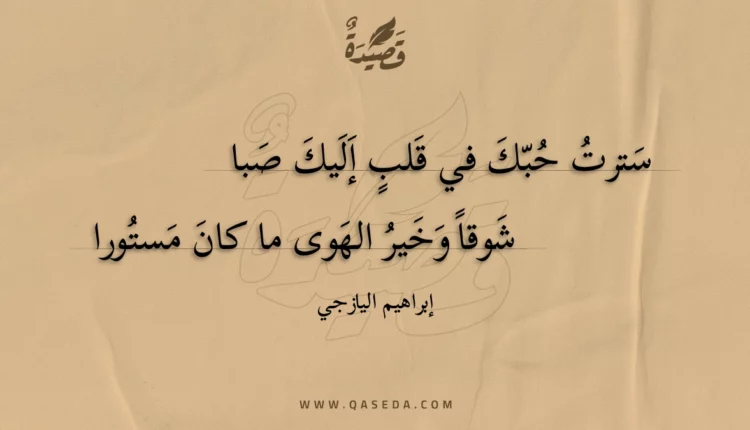 قَصِيدَةٌ
سَترتُ حُبّكَ في قَلبٍ إَلَيكَ صَبا
شَوقاً وَخَيرُ الهَوى ما كانَ مَستُورا
إبراهيم اليازجي
WWW.QASEDA.COM